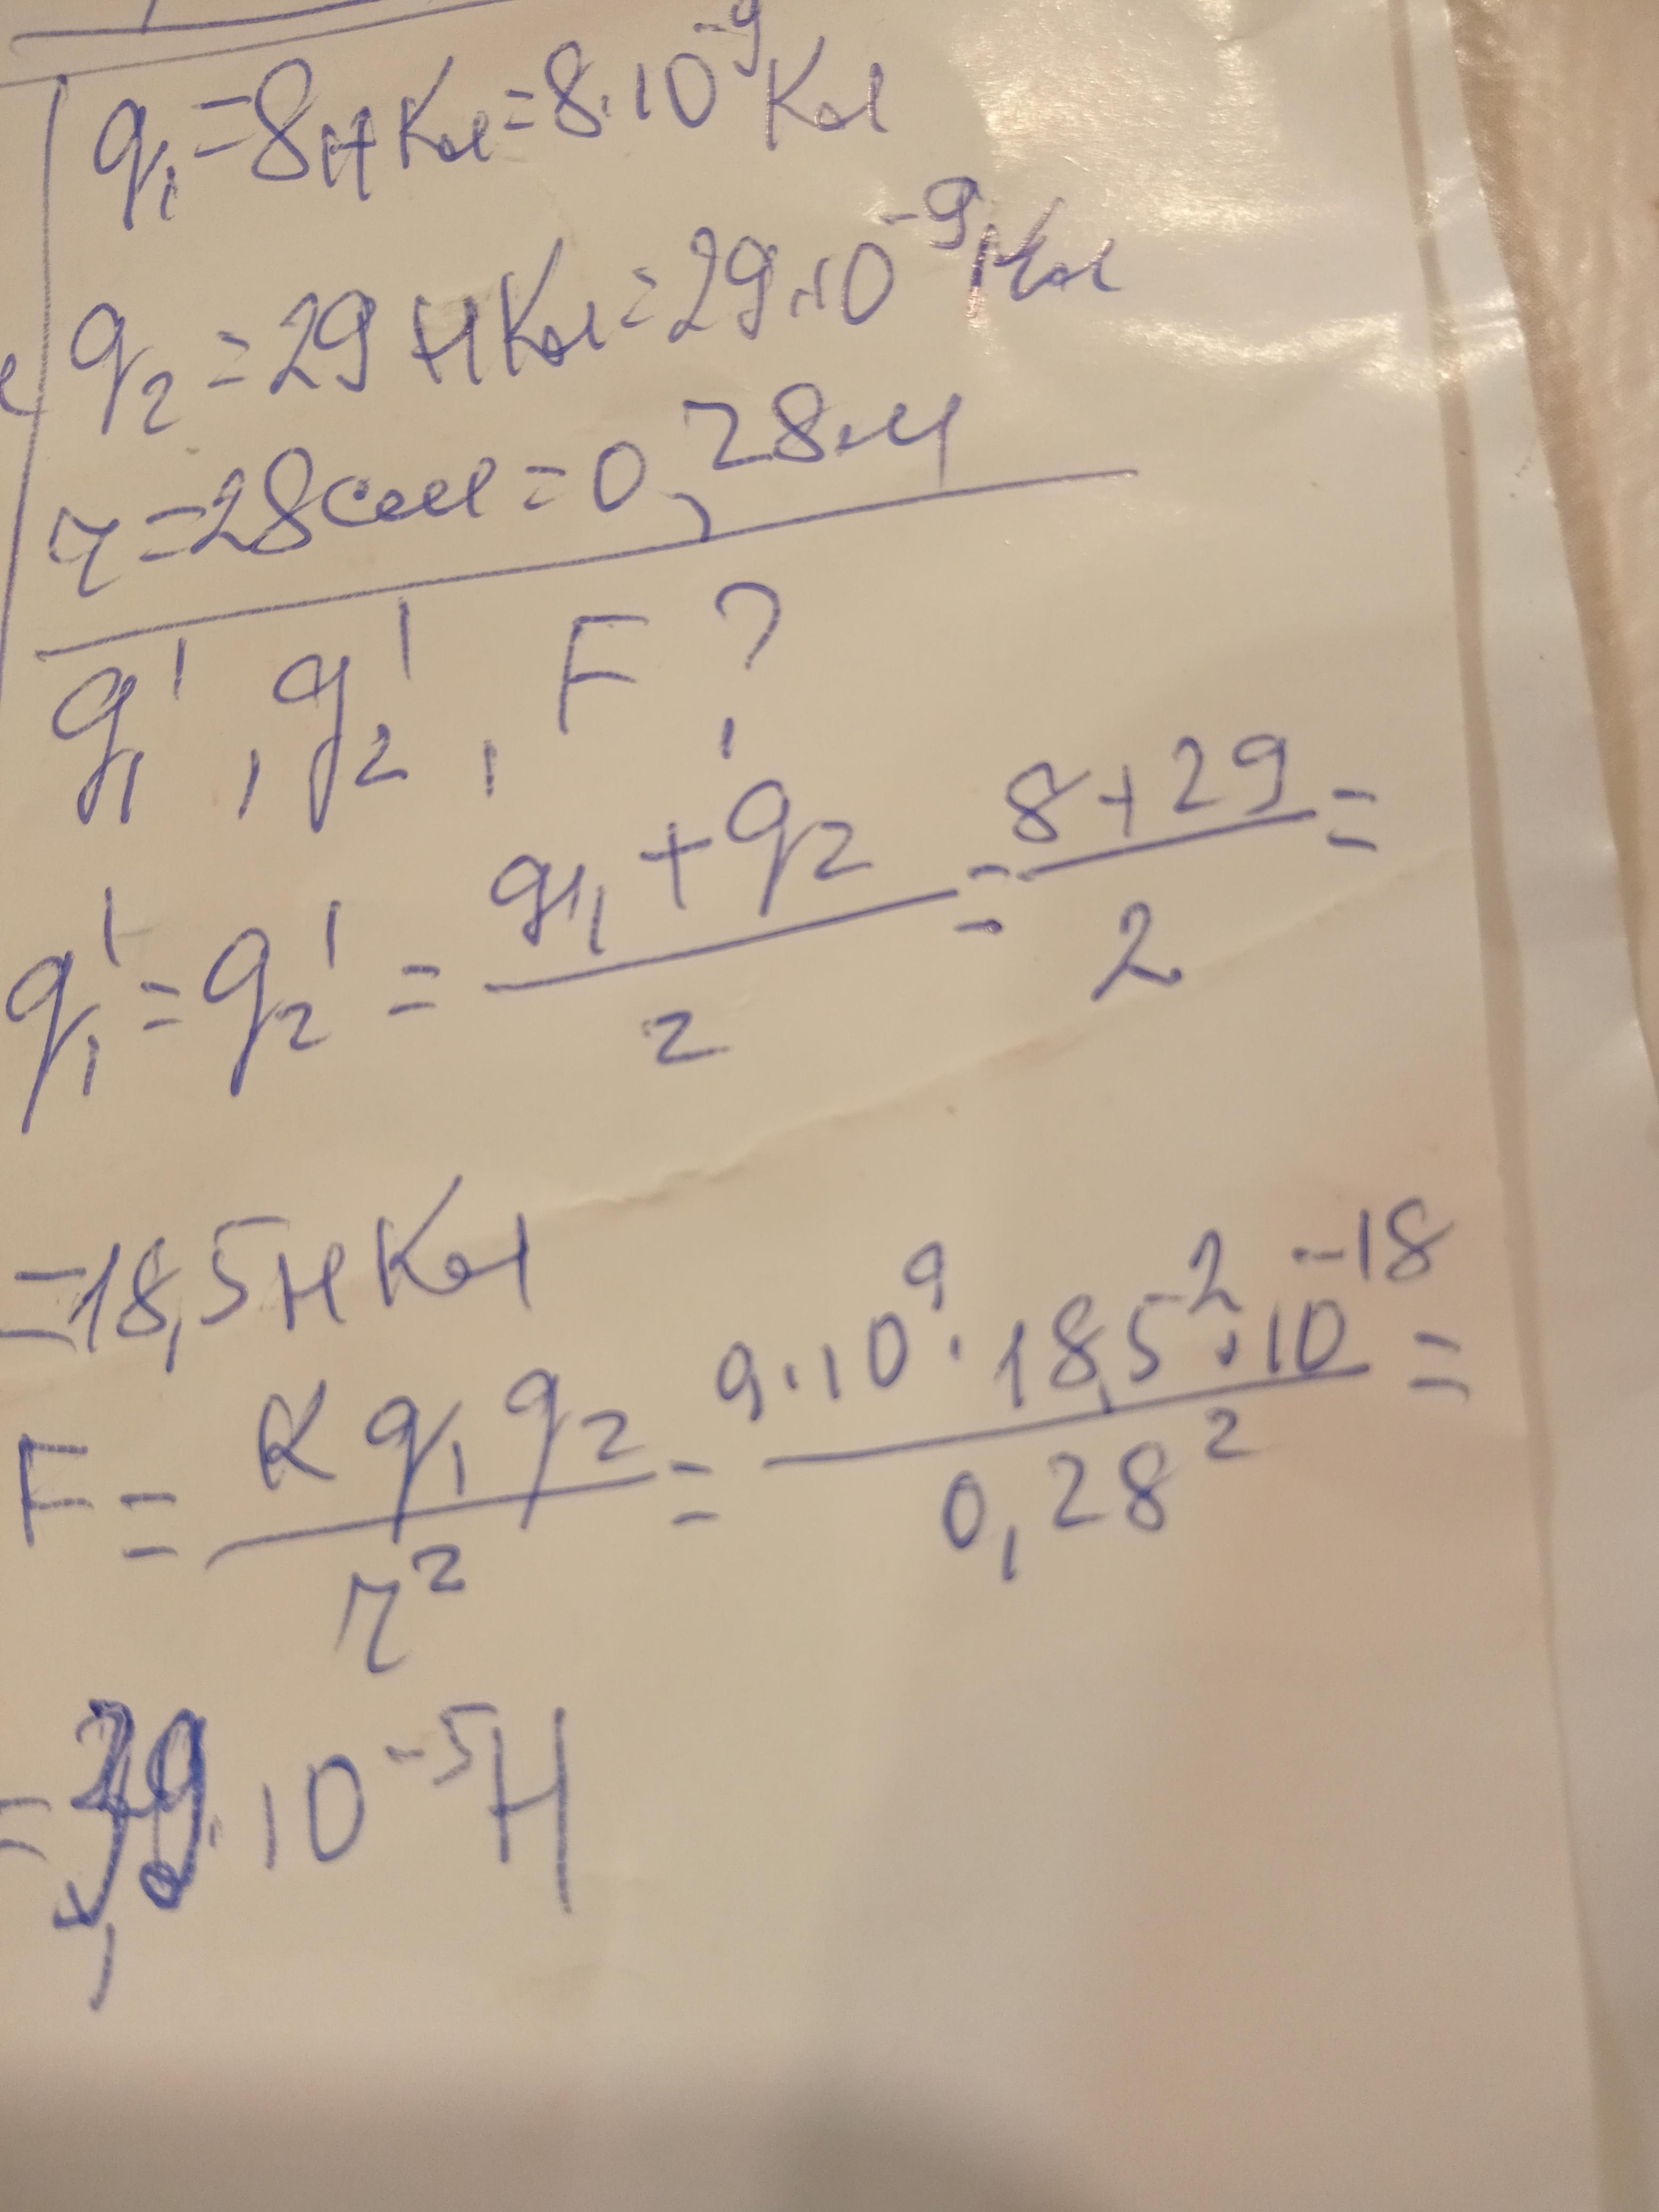 q₁=8нКл=8·10⁻⁹Кл
q₂=29нКл=29·10⁻⁹Кл
r=28см=0,28м
q₁', q₂', F ?
q₁'=q₂'=(q₁+q₂)/2=(8+29)/2=
=18,5нКл
F=(k q₁ q₂)/r²=(9·10⁹·18,5²·10⁻¹⁸)/0,28²=
·10⁻⁵Н